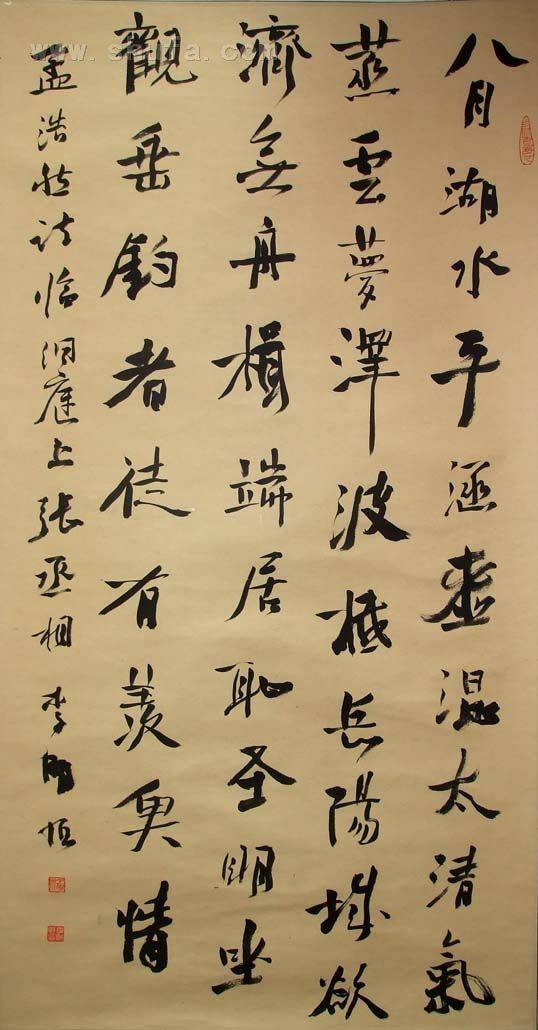 八月湖水平涵虚混太清氣
蒸雲夢澤波撼岳陽城欲
濟無舟楫端居恥圣明坐
觀垂釣者徒有羨魚情
孟浩然詩临洞庭上張丞相 李 恒